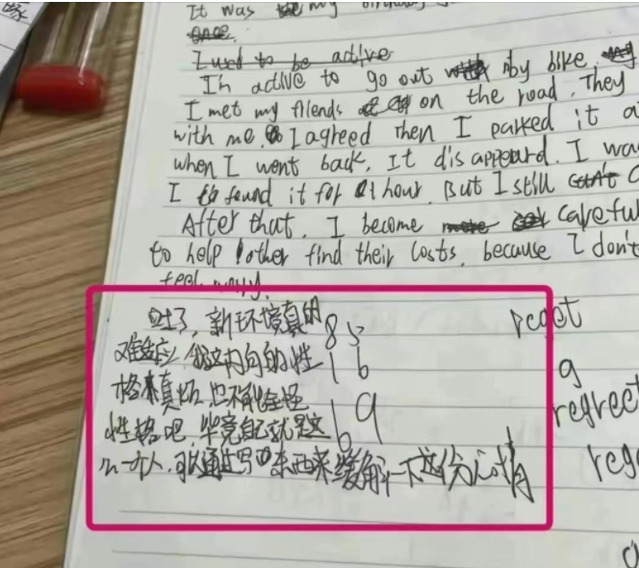 缘
It was my birthday
once.
I used to be active
In active to go out by bike.
I met my friends on the road. They
with me. I agreed Then I parked it a
when I went back, It disappeard. I wa
I found it for 1 hour. But I still
After that, I become careful
to help other find their costs, because I don't
feel
吐了,新环境真的
难适应,我这内向的性
格
性格吧,毕竟自己就是这
么一个人,可以通过写东西来缓解一下这份心情
85
16
19
6
reget
g
regreet
rege